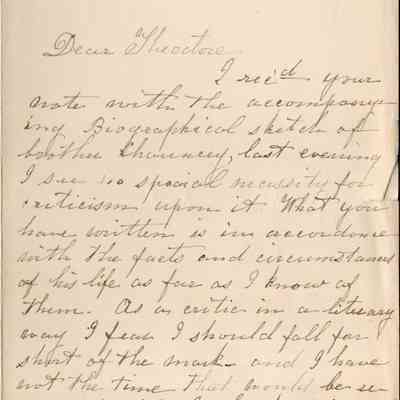 Dear Theodore
I rec'd your
note with the accompany-
ing Biographical sketch of
brother Chauncey, last evening
I see no special necessity for
criticism upon it What you
have written is in accordance
with the facts and circumstances
of his life as far as I know of
them. As a critic in a literary
way I fear I should fall far
short of the mark - and I have
not the time that would be re-